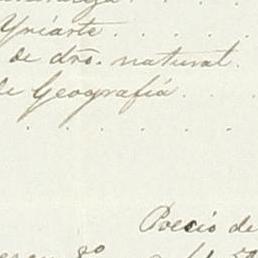 Yriarte . . . . .
de dro. natural.
de Geografía . . .
. . . . .
Precio de
8º